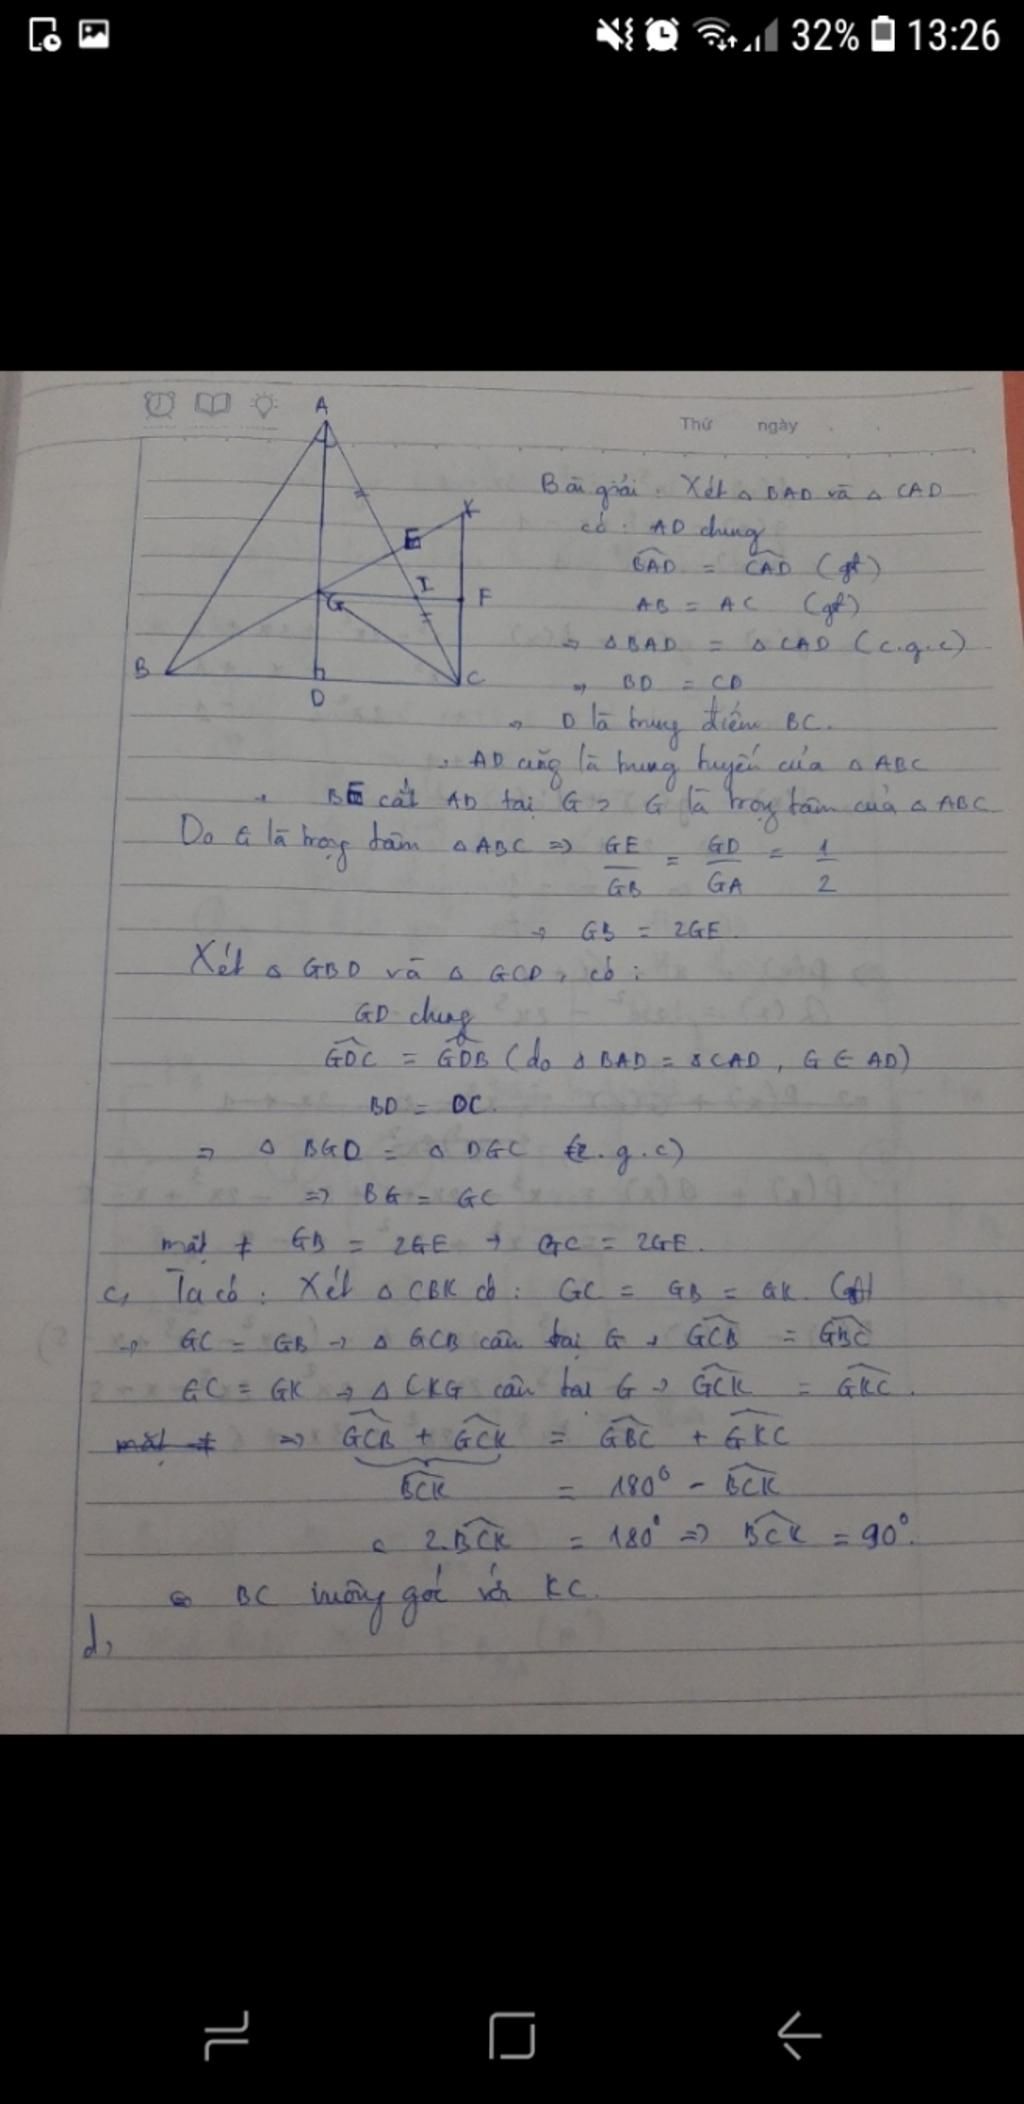 32% 13:26
A
Thứ ngày
Bài giải. Xét △ BAD và △ CAD
có: AD chung
BAD = CAD (gt)
AB = AC (gt)
⇒ △BAD = △CAD (c.g.c)
⇒ BD = CD
K
E
I
G
F
B
D
C
D là trung điểm BC.
AD cũng là trung tuyến của △ ABC
BE cắt AD tại G ⇒ G là trọng tâm của △ ABC
Do G là trọng tâm △ABC ⇒ GE/GB = GD/GA = 1/2
→ GB = 2GE.
Xét △ GBD và △ GCD, có:
GD chung
GDC = GDB (do △ BAD = △CAD, G ∈ AD)
BD = DC.
⇒ △ BGD = △ DGC (c.g.c)
⇒ BG = GC
mặt ≠ GB = 2GE → GC = 2GE.
c, Ta có: Xét △ CBK có: GC = GB = GK. (gt)
→ GC = GB → △ GCB cân tại G → GCB = GBC
GC = GK → △ CKG cân tại G → GCK = GKC.
mặt ≠ ⇒ GCB + GCK = GBC + GKC
BCK = 180° - BCK
2.BCK = 180° ⇒ BCK = 90°.
BC vuông góc với KC.
d,